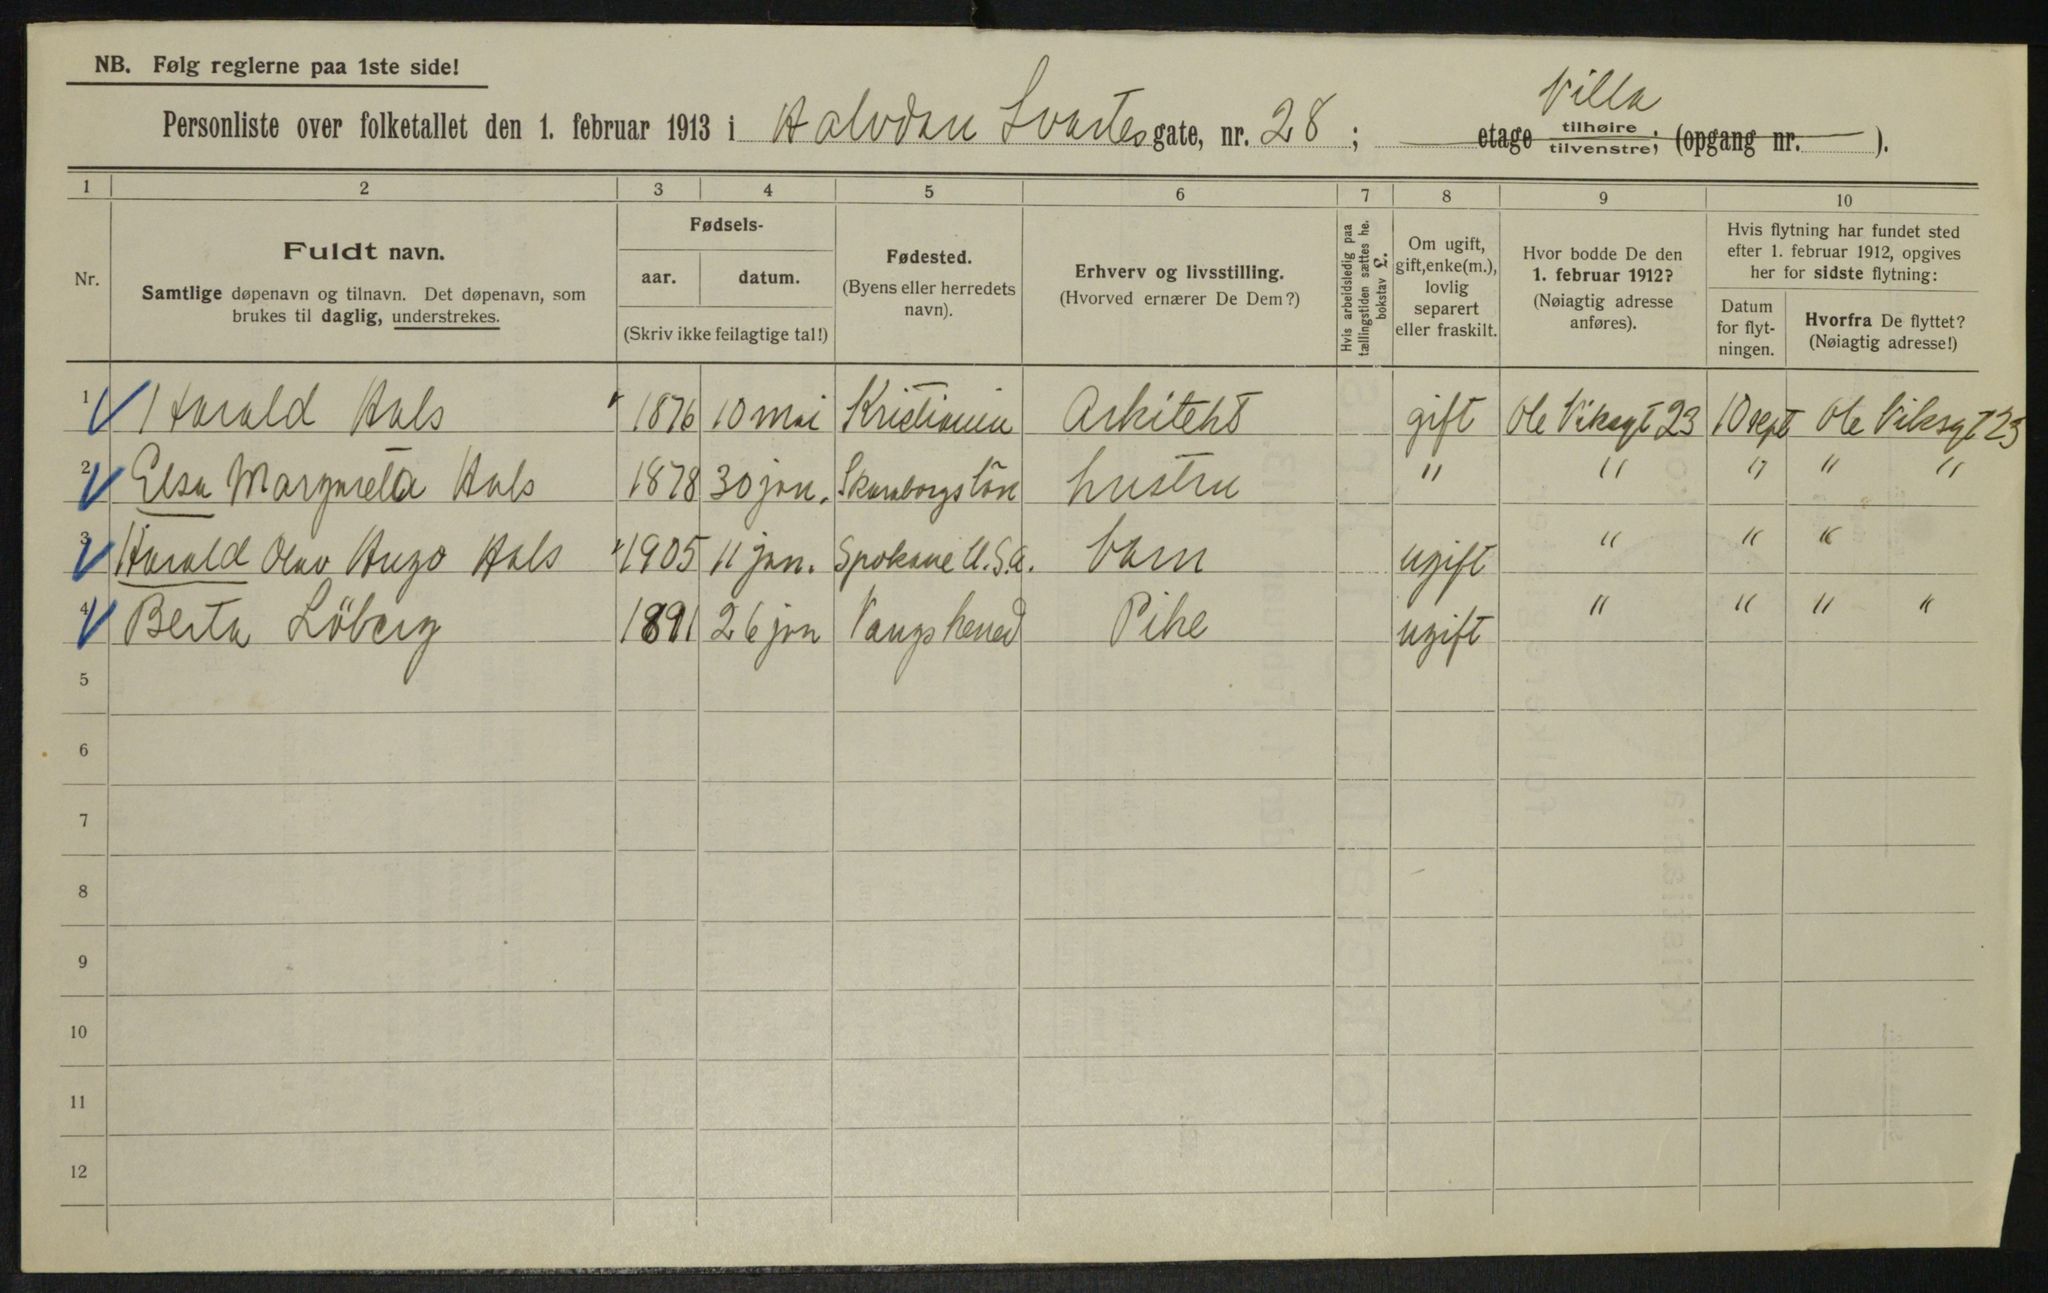 NB. Følg reglerne paa 1ste side!
Villa
Personliste over folketallet den 1. februar 1913 i Halvdan Svartes gate, nr. 28 ; etage tilhøire / tilvenstre; (opgang nr. — ).
1 2 3 4 5 6 7 8 9 10
Nr.
Fuldt navn.
Samtlige døpenavn og tilnavn. Det døpenavn, som
brukes til daglig, understrekes.
Fødsels-
aar. datum.
(Skriv ikke feilagtige tal!)
Fødested.
(Byens eller herredets
navn).
Erhverv og livsstilling.
(Hvorved ernærer De Dem?)
Hvis arbeidsledig paa
tællingstiden sættes he.
bokstav L.
Om ugift,
gift, enke(m.),
lovlig
separert
eller fraskilt.
Hvor bodde De den
1. februar 1912?
(Nøiagtig adresse
anføres).
Hvis flytning har fundet sted
efter 1. februar 1912, opgives
her for sidste flytning:
Datum
for flyt-
ningen.
Hvorfra De flyttet?
(Nøiagtig adresse!)
1 Harald Hals 1876 10 mai Kristiania Arkitekt gift Ole Viksgt 23 10 sept Ole Viksgt 23
2 Elsa Margareta Hals 1878 30 jan. Skaraborgs län hustru " " " " "
3 Harald Olav Hugo Hals 1905 11 jan. Spokane U.S.A. barn ugift " " "
4 Berta Löberg 1891 26 jan Vangs herred Pike ugift " " " "
5
6
7
8
9
10
11
12